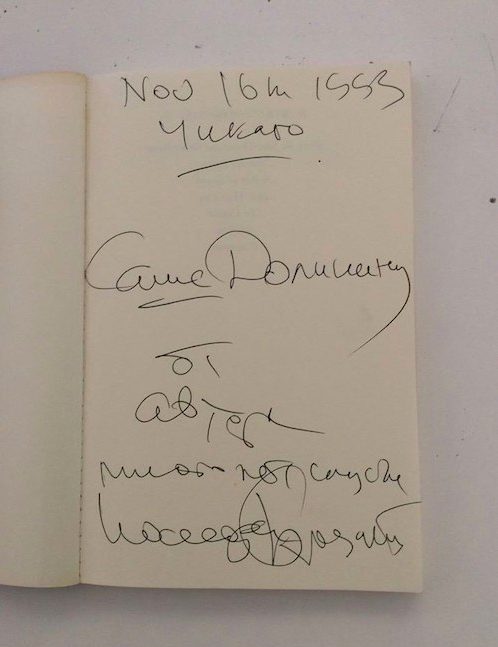 Nov 16th 1993
Чикаго
Саше Долинину
от
автора
много лет спустя
Иосиф Бродский